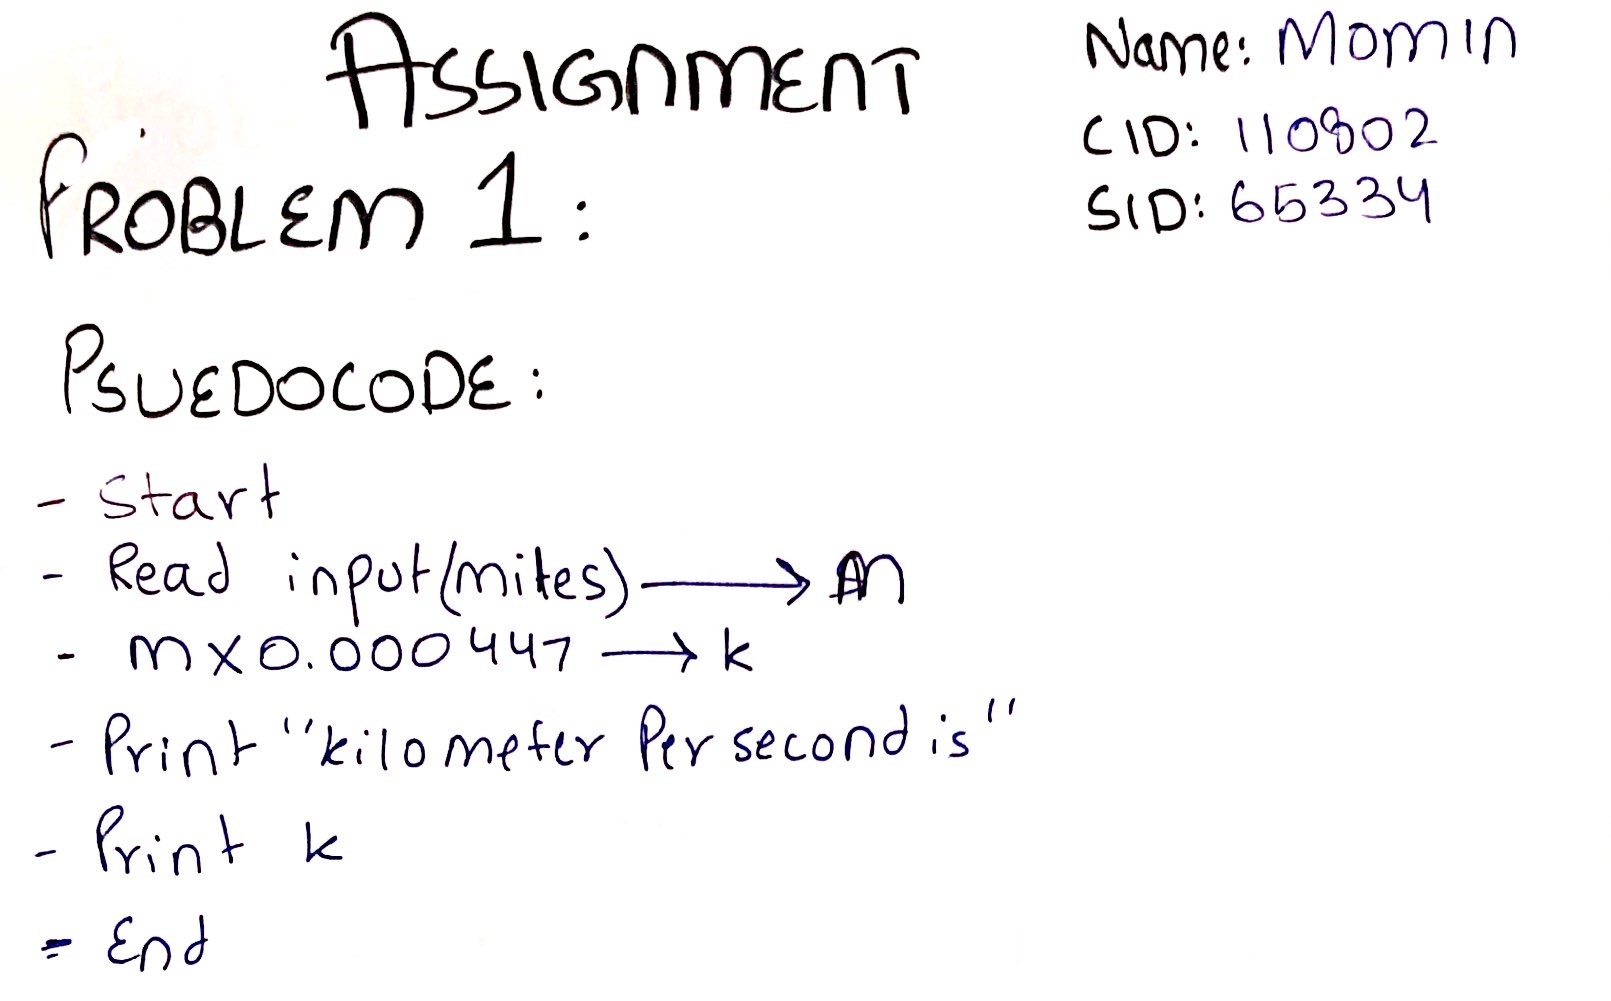 ASSIGNMENT
Name: Momin
CID: 110802
SID: 65334
PROBLEM 1:
PSUEDOCODE:
- Start
- Read input(miles) → m
- m x 0.000447 → k
- Print "kilometer Per second is"
- Print k
- End